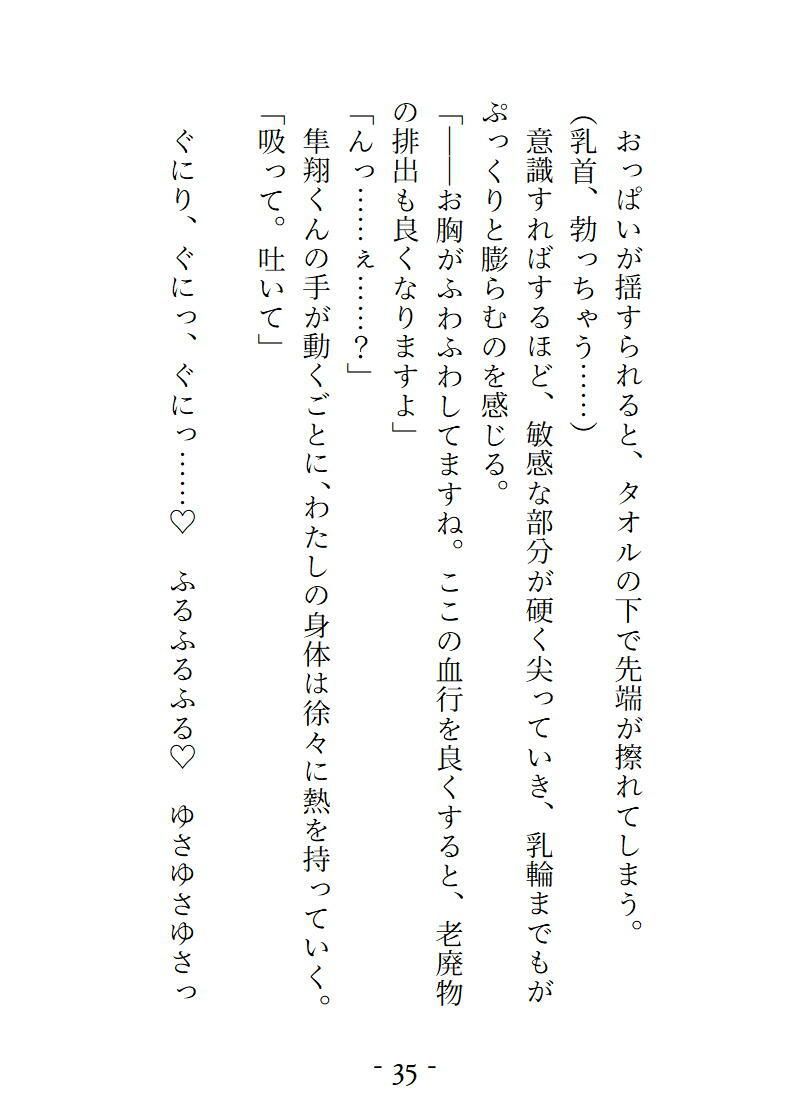 おっぱいが揺すられると、タオルの下で先端が擦れてしまう。
(乳首、勃っちゃう……)
意識すればするほど、敏感な部分が硬く尖っていき、乳輪までもが
ぷっくりと膨らむのを感じる。
「――お胸がふわふわしてますね。ここの血行を良くすると、老廃物
の排出も良くなりますよ」
「んっ……ぇ……？」
隼翔くんの手が動くごとに、わたしの身体は徐々に熱を持っていく。
「吸って。吐いて」
ぐにり、ぐにっ、ぐにっ……♡　ふるふるふる♡　ゆさゆさゆさっ
- 35 -